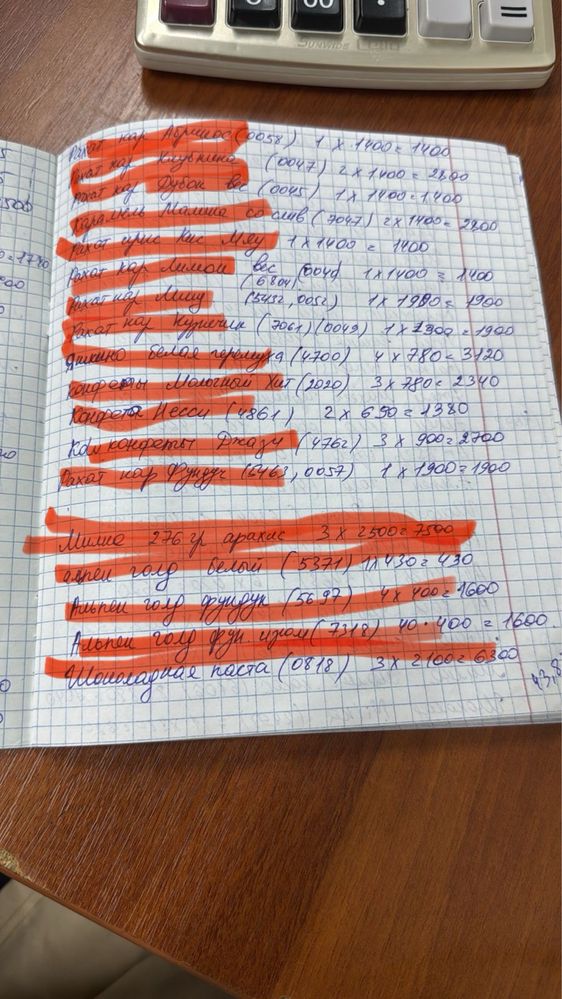 Рахат кар Абрикос (0058) 1 x 1400 = 1400
Рахат кар Клубника (0047) 2 x 1400 = 2800
Рахат кар Дубок вес (0045) 1 x 1400 = 1400
Карамель Малина со слив (7047) 2 x 1400 = 2800
Рахат ирис Кис Мяу 1 x 1400 = 1400
Рахат кар Лимон вес (0046) 1 x 1400 = 1400
(6804)
Рахат кар Мишу (5452, 0052) 1 x 1900 = 1900
Рахат кар Кузнечик (7061) (0049) 1 x 1900 = 1900
Яшкино белая черемуха (4700) 4 x 780 = 3120
Конфеты Молочный Хит (2020) 3 x 780 = 2340
Конфета Несси (4861) 2 x 690 = 1380
конфеты Джази (4762) 3 x 900 = 2700
Рахат кар Фундук (6463, 0057) 1 x 1900 = 1900
Милка 276 гр арахис 3 x 2500 = 7500
алпен голд белый (5371) 1 x 430 = 430
Альпен голд фундук (5697) 4 x 400 = 1600
Альпен голд фун изюм (7318) 40 · 400 = 1600
Шоколадная паста (0818) 3 x 2100 = 6300
43,8